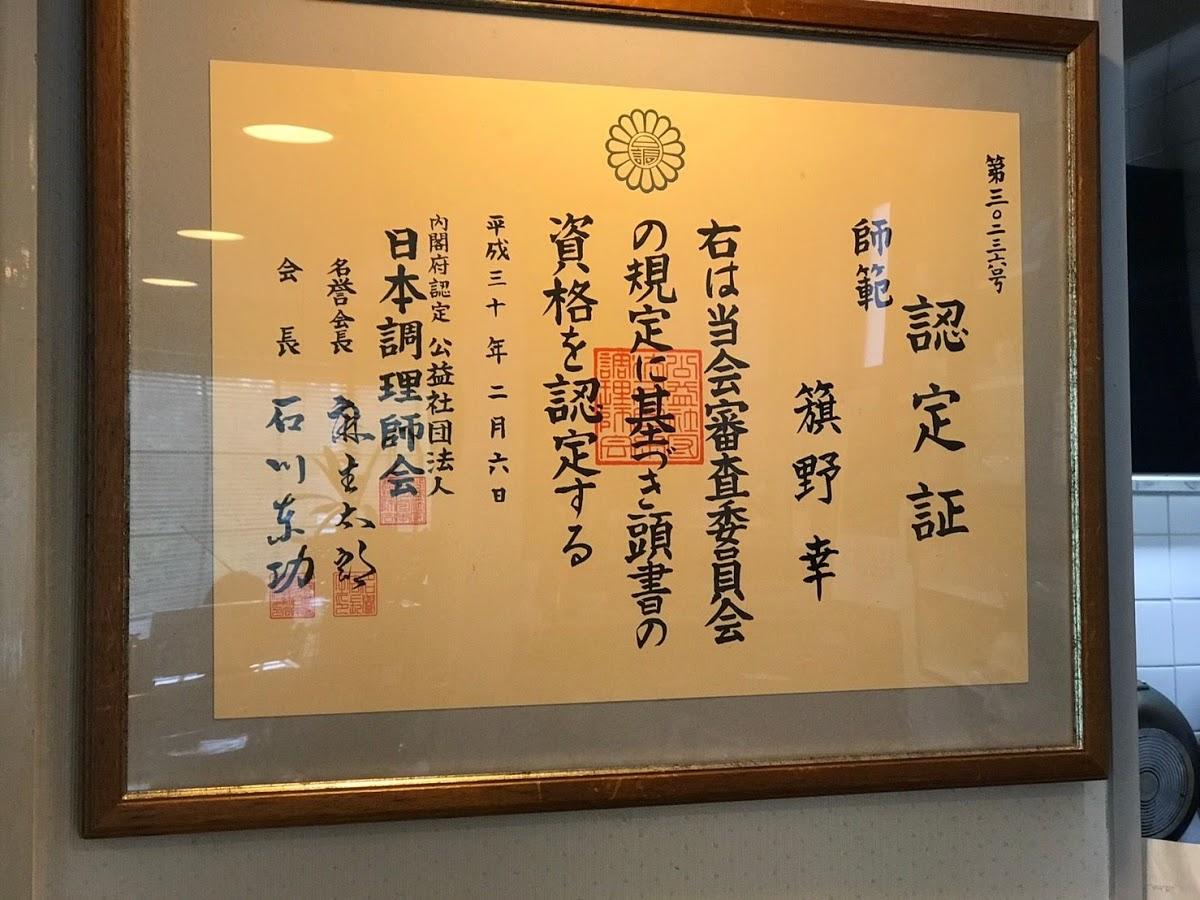 第三〇二三六号
認定証
師範
籏野幸
右は当会審査委員会
の規定に基づき頭書の
資格を認定する
平成三十年二月六日
内閣府認定 公益社団法人
日本調理師会
名誉会長 麻生太郎
会長 石川東功